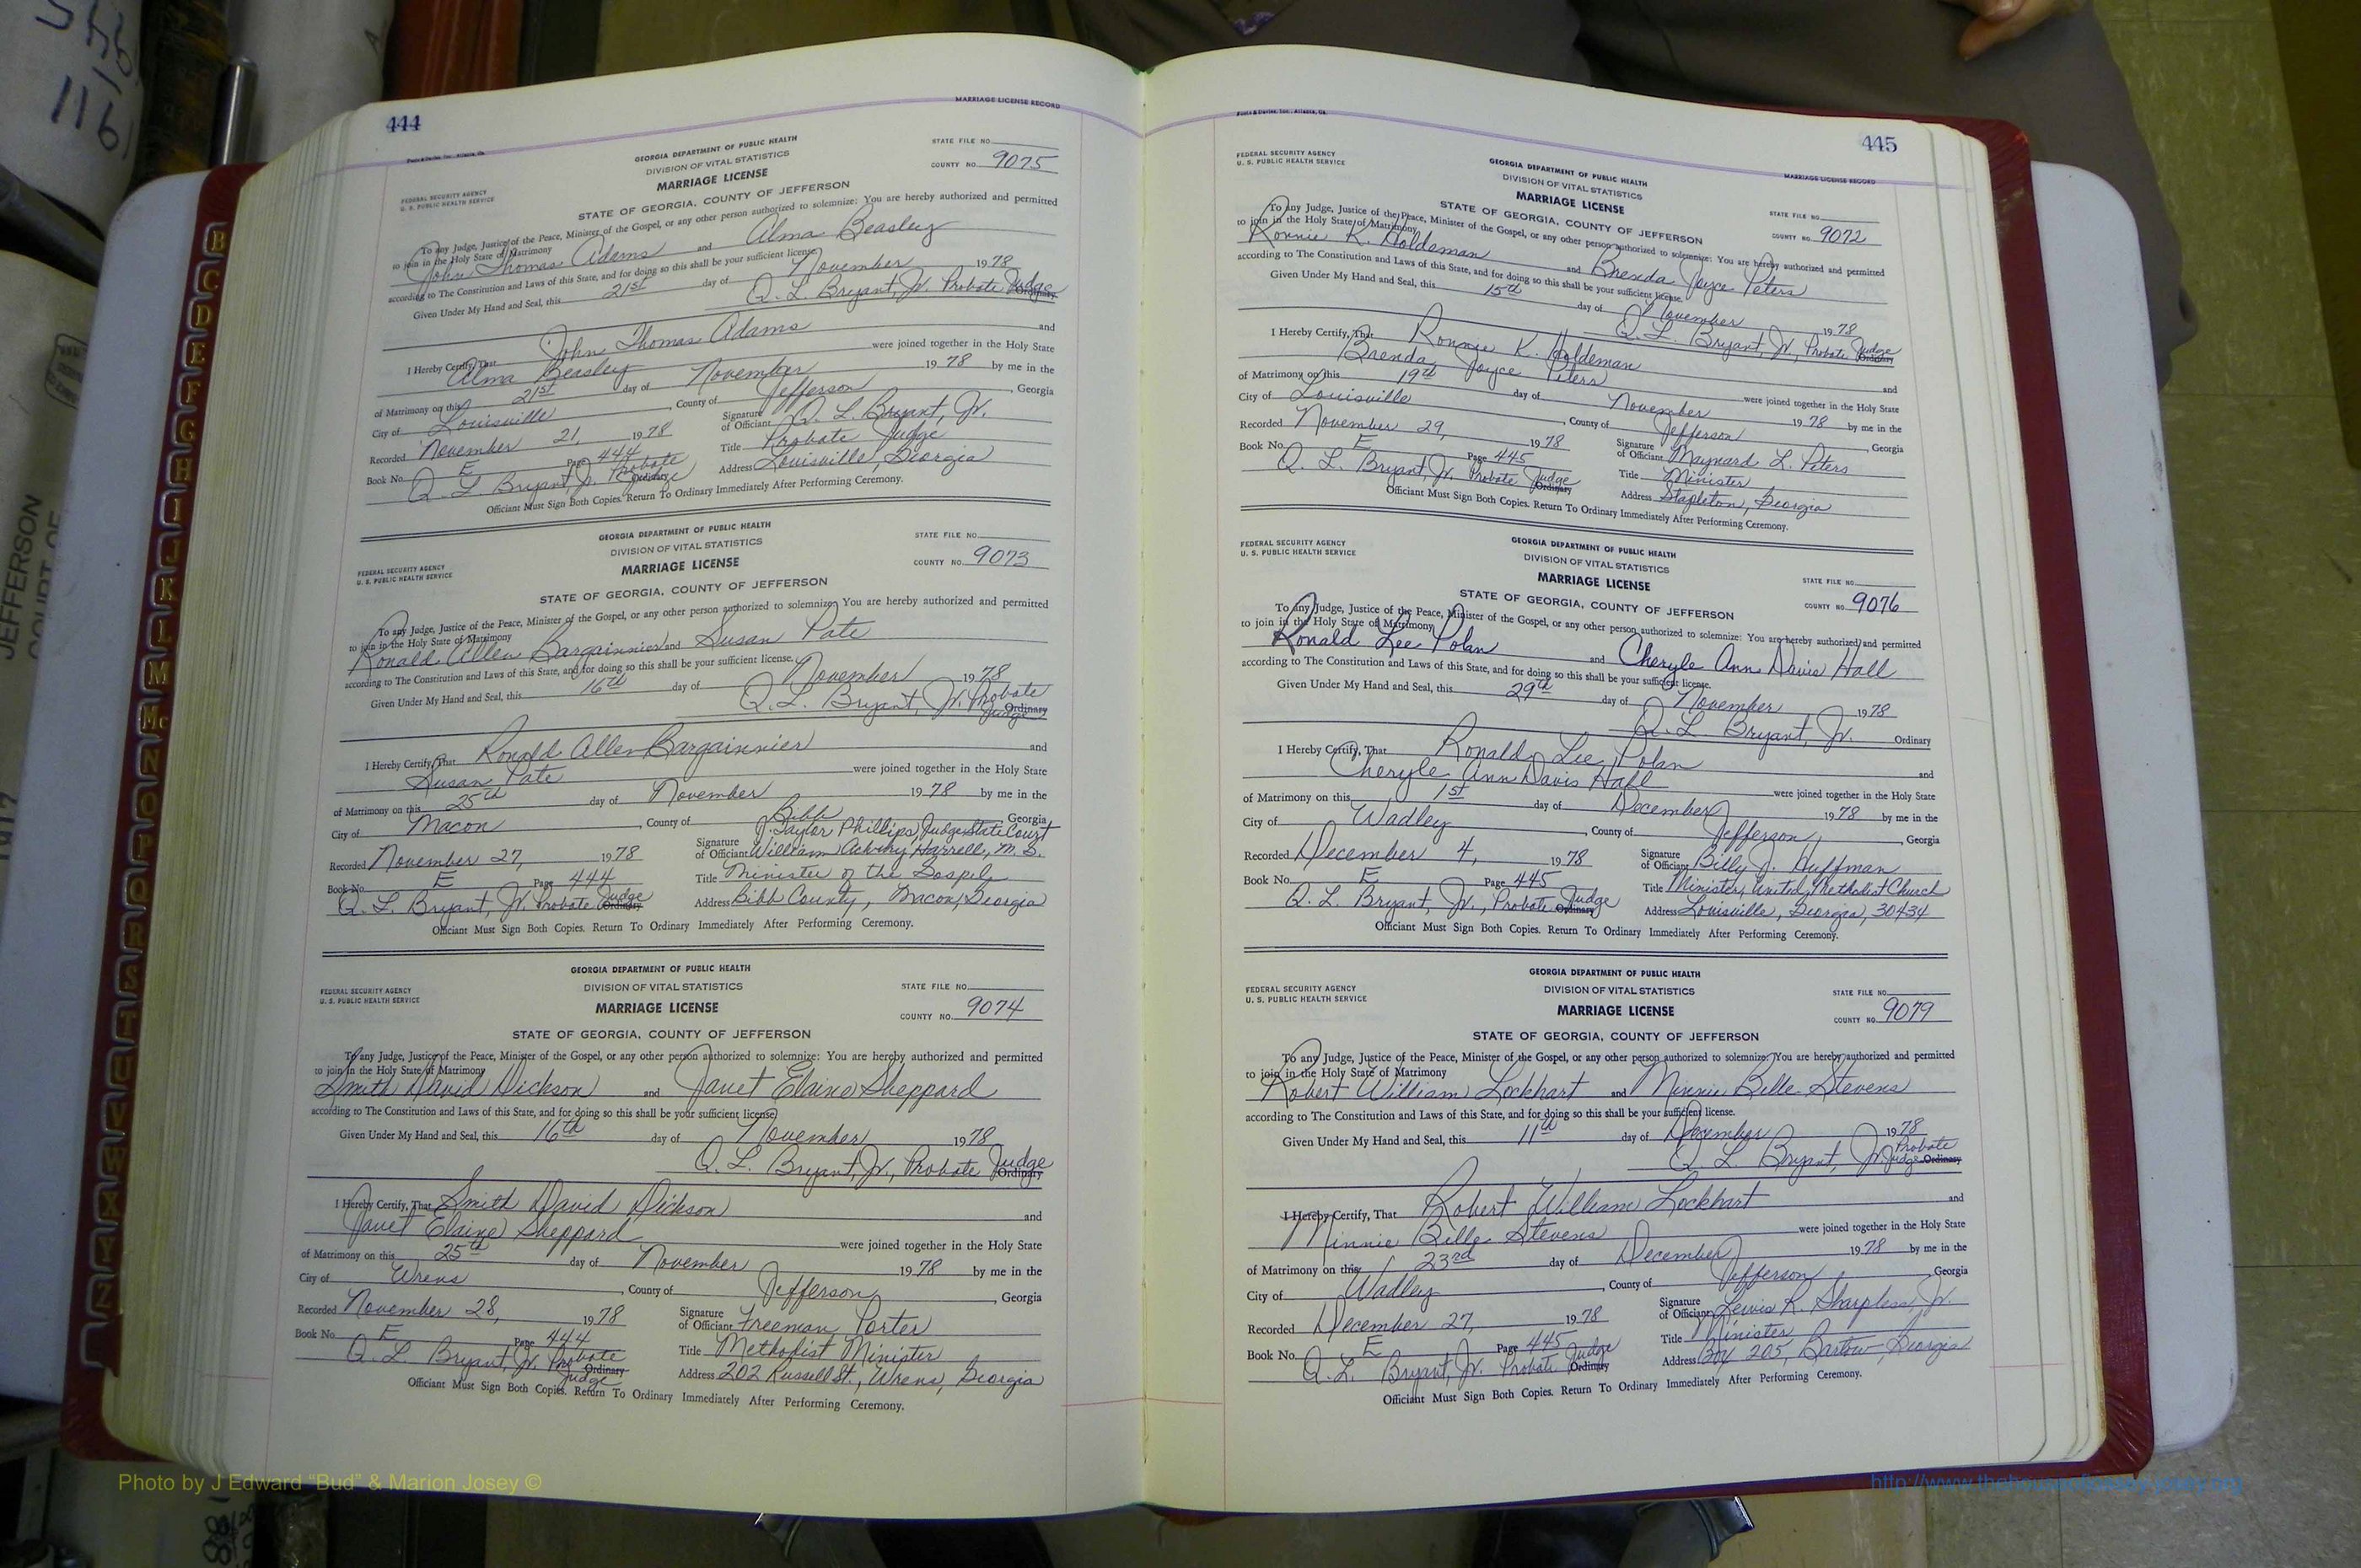 444
MARRIAGE LICENSE RECORD
Foote & Davies, Inc., Atlanta, Ga.
GEORGIA DEPARTMENT OF PUBLIC HEALTH
DIVISION OF VITAL STATISTICS
MARRIAGE LICENSE
STATE OF GEORGIA, COUNTY OF JEFFERSON
FEDERAL SECURITY AGENCY
U. S. PUBLIC HEALTH SERVICE
STATE FILE NO.
COUNTY NO. 9075
To any Judge, Justice of the Peace, Minister of the Gospel, or any other person authorized to solemnize: You are hereby authorized and permitted
to join in the Holy State of Matrimony
John Thomas Adams and Alma Beasley
according to The Constitution and Laws of this State, and for doing so this shall be your sufficient license.
Given Under My Hand and Seal, this 21st day of November 1978
Q. L. Bryant, Jr. Probate Judge Ordinary
I Hereby Certify, That John Thomas Adams and
Alma Beasley were joined together in the Holy State
of Matrimony on this 21st day of November 1978 by me in the
City of Louisville, County of Jefferson, Georgia
Recorded November 21, 1978 Signature of Officiant Q. L. Bryant, Jr.
Book No. E Page 444 Title Probate Judge
Q. L. Bryant, Jr. Probate Judge Ordinary Address Louisville, Georgia
Officiant Must Sign Both Copies. Return To Ordinary Immediately After Performing Ceremony.
GEORGIA DEPARTMENT OF PUBLIC HEALTH
DIVISION OF VITAL STATISTICS
MARRIAGE LICENSE
STATE OF GEORGIA, COUNTY OF JEFFERSON
FEDERAL SECURITY AGENCY
U. S. PUBLIC HEALTH SERVICE
STATE FILE NO.
COUNTY NO. 9073
To any Judge, Justice of the Peace, Minister of the Gospel, or any other person authorized to solemnize: You are hereby authorized and permitted
to join in the Holy State of Matrimony
Ronald Allen Bargainnier and Susan Pate
according to The Constitution and Laws of this State, and for doing so this shall be your sufficient license.
Given Under My Hand and Seal, this 16th day of November 1978
Q. L. Bryant, Jr. Probate Judge Ordinary
I Hereby Certify, That Ronald Allen Bargainnier and
Susan Pate were joined together in the Holy State
of Matrimony on this 25th day of November 1978 by me in the
City of Macon, County of Bibb, Georgia
J. Taylor Phillips, Judge State Court
Recorded November 27, 1978 Signature of Officiant William Harrell, M. D.
Book No. E Page 444 Title Minister of the Gospel
Q. L. Bryant, Jr. Probate Judge Ordinary Address Bibb County, Macon, Georgia
Officiant Must Sign Both Copies. Return To Ordinary Immediately After Performing Ceremony.
GEORGIA DEPARTMENT OF PUBLIC HEALTH
DIVISION OF VITAL STATISTICS
MARRIAGE LICENSE
STATE OF GEORGIA, COUNTY OF JEFFERSON
FEDERAL SECURITY AGENCY
U. S. PUBLIC HEALTH SERVICE
STATE FILE NO.
COUNTY NO. 9074
To any Judge, Justice of the Peace, Minister of the Gospel, or any other person authorized to solemnize: You are hereby authorized and permitted
to join in the Holy State of Matrimony
Smith David Dickson and Janet Elaine Sheppard
according to The Constitution and Laws of this State, and for doing so this shall be your sufficient license.
Given Under My Hand and Seal, this 16th day of November 1978
Q. L. Bryant, Jr., Probate Judge Ordinary
I Hereby Certify, That Smith David Dickson and
Janet Elaine Sheppard were joined together in the Holy State
of Matrimony on this 25th day of November 1978 by me in the
City of Wrens, County of Jefferson, Georgia
Recorded November 28, 1978 Signature of Officiant Freeman Porter
Book No. E Page 444 Title Methodist Minister
Q. L. Bryant, Jr. Probate Judge Ordinary Address 202 Russell St., Wrens, Georgia
Officiant Must Sign Both Copies. Return To Ordinary Immediately After Performing Ceremony.
445
MARRIAGE LICENSE RECORD
Foote & Davies, Inc., Atlanta, Ga.
FEDERAL SECURITY AGENCY
U. S. PUBLIC HEALTH SERVICE
GEORGIA DEPARTMENT OF PUBLIC HEALTH
DIVISION OF VITAL STATISTICS
MARRIAGE LICENSE
STATE OF GEORGIA, COUNTY OF JEFFERSON
STATE FILE NO.
COUNTY NO. 9072
To any Judge, Justice of the Peace, Minister of the Gospel, or any other person authorized to solemnize: You are hereby authorized and permitted
to join in the Holy State of Matrimony
Ronnie K. Holdeman and Brenda Joyce Peters
according to The Constitution and Laws of this State, and for doing so this shall be your sufficient license.
Given Under My Hand and Seal, this 15th day of November 1978
Q. L. Bryant, Jr., Probate Judge Ordinary
I Hereby Certify, That Ronnie K. Holdeman and
Brenda Joyce Peters were joined together in the Holy State
of Matrimony on this 19th day of November 1978 by me in the
City of Louisville, County of Jefferson, Georgia
Recorded November 29, 1978 Signature of Officiant Maynard L. Peters
Book No. E Page 445 Title Minister
Q. L. Bryant, Jr. Probate Judge Ordinary Address Stapleton, Georgia
Officiant Must Sign Both Copies. Return To Ordinary Immediately After Performing Ceremony.
FEDERAL SECURITY AGENCY
U. S. PUBLIC HEALTH SERVICE
GEORGIA DEPARTMENT OF PUBLIC HEALTH
DIVISION OF VITAL STATISTICS
MARRIAGE LICENSE
STATE OF GEORGIA, COUNTY OF JEFFERSON
STATE FILE NO.
COUNTY NO. 9076
To any Judge, Justice of the Peace, Minister of the Gospel, or any other person authorized to solemnize: You are hereby authorized and permitted
to join in the Holy State of Matrimony
Ronald Lee Polan and Cheryle Ann Davis Hall
according to The Constitution and Laws of this State, and for doing so this shall be your sufficient license.
Given Under My Hand and Seal, this 29th day of November 1978
Q. L. Bryant, Jr. Ordinary
I Hereby Certify, That Ronald Lee Polan and
Cheryle Ann Davis Hall were joined together in the Holy State
of Matrimony on this 1st day of December 1978 by me in the
City of Wadley, County of Jefferson, Georgia
Recorded December 4, 1978 Signature of Officiant Billy J. Huffman
Book No. E Page 445 Title Minister, United Methodist Church
Q. L. Bryant, Jr., Probate Judge Ordinary Address Louisville, Georgia, 30434
Officiant Must Sign Both Copies. Return To Ordinary Immediately After Performing Ceremony.
FEDERAL SECURITY AGENCY
U. S. PUBLIC HEALTH SERVICE
GEORGIA DEPARTMENT OF PUBLIC HEALTH
DIVISION OF VITAL STATISTICS
MARRIAGE LICENSE
STATE OF GEORGIA, COUNTY OF JEFFERSON
STATE FILE NO.
COUNTY NO. 9079
To any Judge, Justice of the Peace, Minister of the Gospel, or any other person authorized to solemnize: You are hereby authorized and permitted
to join in the Holy State of Matrimony
Robert William Lockhart and Minnie Belle Stevens
according to The Constitution and Laws of this State, and for doing so this shall be your sufficient license.
Given Under My Hand and Seal, this 11th day of December 1978
Q. L. Bryant, Jr. Probate Judge Ordinary
I Hereby Certify, That Robert William Lockhart and
Minnie Belle Stevens were joined together in the Holy State
of Matrimony on this 23rd day of December 1978 by me in the
City of Wadley, County of Jefferson, Georgia
Recorded December 27, 1978 Signature of Officiant Lewis R. Sharpless, Jr.
Book No. E Page 445 Title Minister
Q. L. Bryant, Jr. Probate Judge Ordinary Address Box 205, Bartow, Georgia
Officiant Must Sign Both Copies. Return To Ordinary Immediately After Performing Ceremony.
B
C
D
E
F
G
H
I
J
K
L
M
Mc
N
O
P
Q
R
S
T
U
V
W
X
Y
Z
1161
JEFFERSON
COURT OF
Photo by J Edward “Bud” & Marion Josey ©